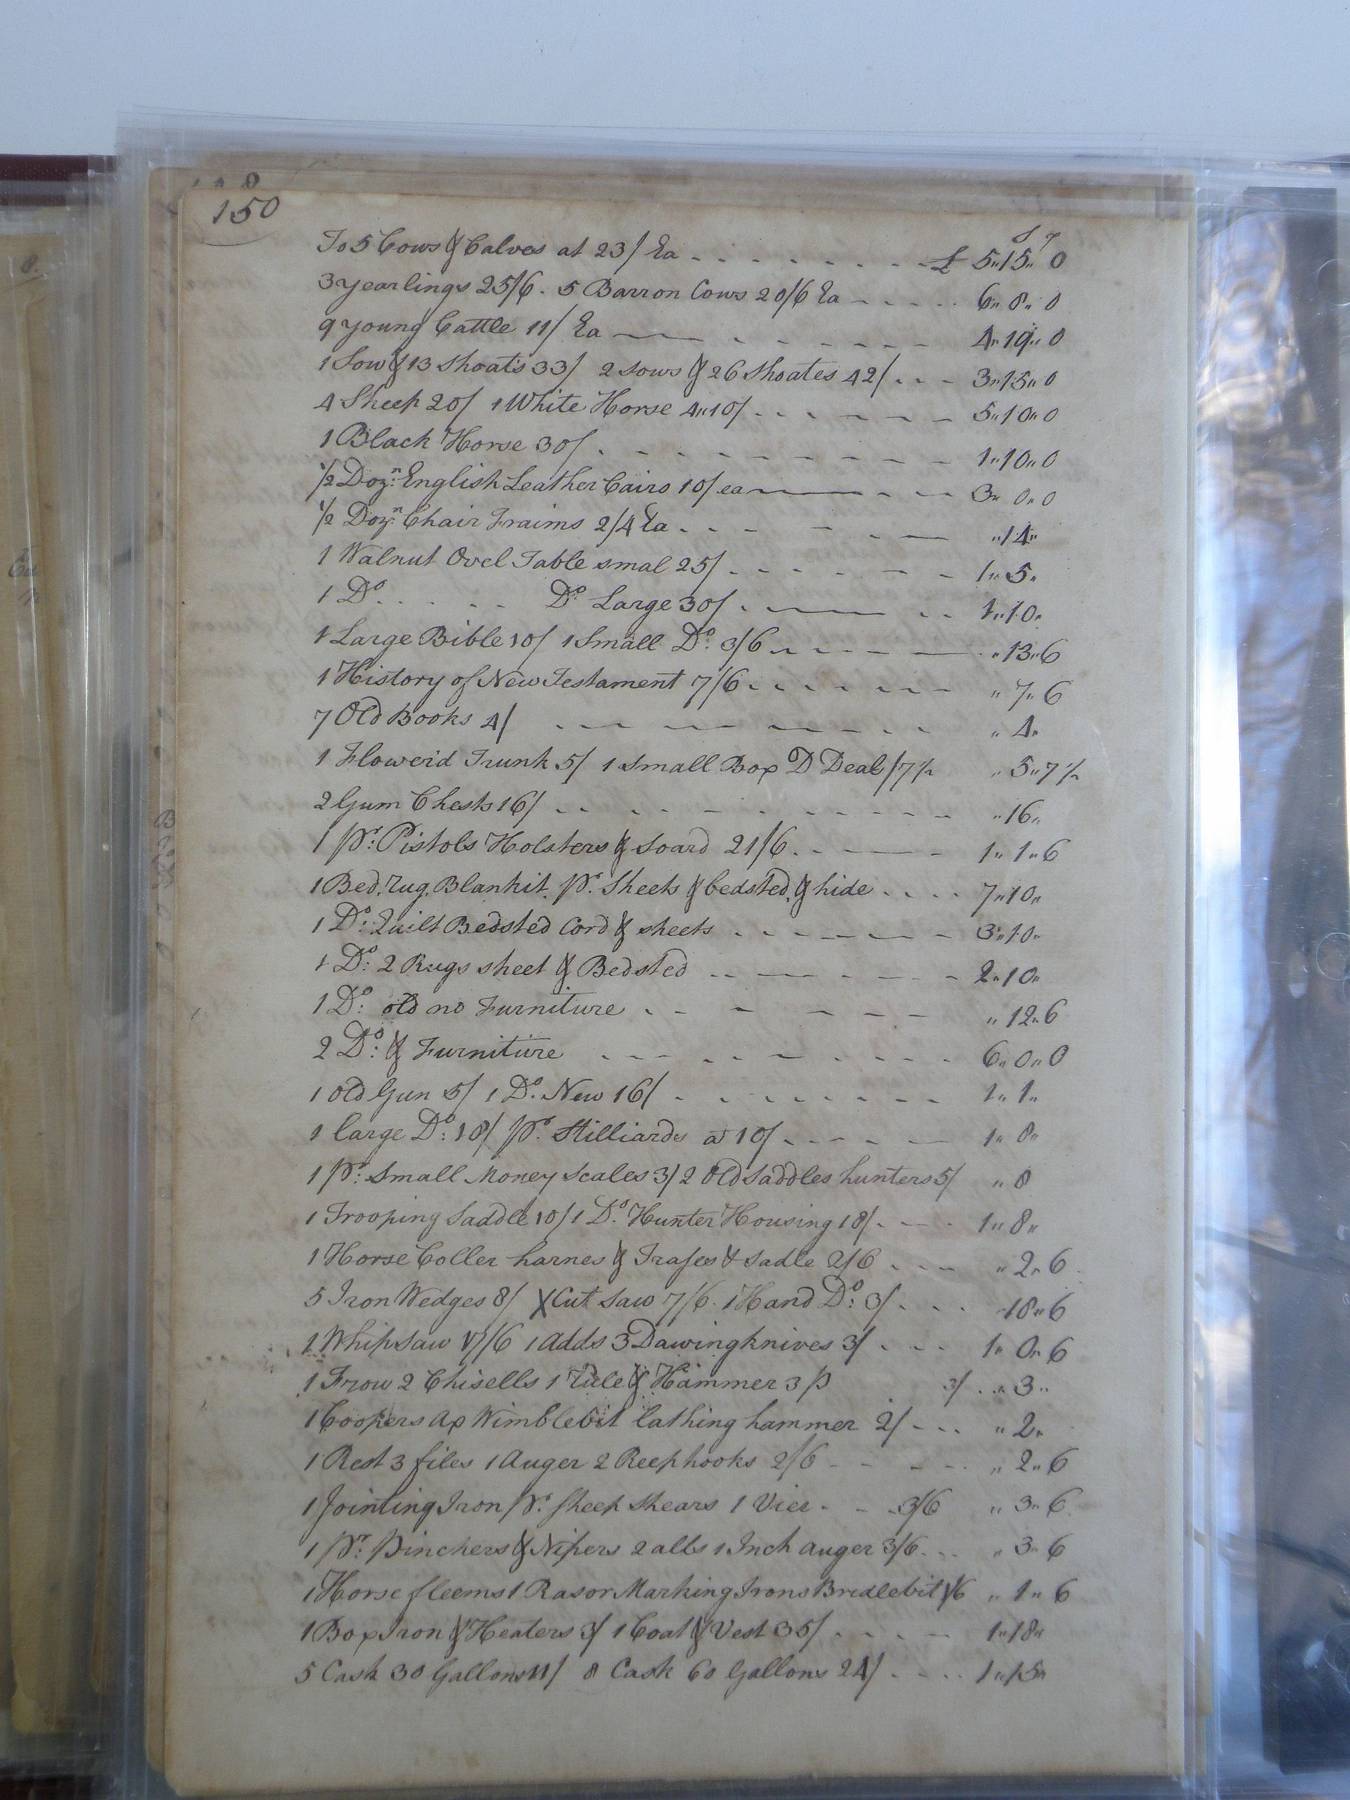 150
s d
To 5 Cows & Calves at 23/ Ea . . . . . £ 5„15„0
3 yearlings 25/6 . 5 Barron Cows 20/6 Ea - - - - 6„8„0
9 young Cattle 11/ Ea - - - - 4„19„0
1 Sow & 13 Shoats 33/ 2 sows & 26 Shoates 42/ . - - 3„15„0
4 Sheep 20/ 1 White Horse 4„10/ . - - - - 5„10„0
1 Black Horse 30/ . - - - - 1„10„0
1/2 Dozn: English Leather Cairs 10/ ea - - - 3„0„0
1/2 Dozn: Chair Fraims 2/4 Ea . - - - - „14„
1 Walnut Ovel Table smal 25/ . - - - - 1„5„
1 Do . . . . . Do: Large 30/ . - - . . 1„10„
1 Large Bible 10/ 1 Small Do: 3/6 - - - - „13„6
1 History of New Testament 7/6 . - - - - „7„6
7 Old Books 4/ - - - - „4„
1 Flowerd Trunk 5/ 1 Small Box D Deal /7 1/2 „5„7 1/2
2 Gum Chests 16/ . . - - - - „16„
1 pr: Pistols Holsters & Soard 21/6 . - - - 1„1„6
1 Bed, Rug, Blankit, pr: Sheets & bedsted, & hide . . . . 7„10„
1 Do: Quilt Bedsted Cord & sheets . - - - - 3„10„
1 Do: 2 Rugs sheet & Bedsted - - - - 2„10„
1 Do: old no Furniture . - - - - „12„6
2 Do: & Furniture - - - - 6„0„0
1 old Gun 5/ 1 Do. New 16/ . - - - - 1„1„
1 large Do: 18/ pr: Stilliards at 10/ . - - - - 1„8„
1 pr: Small Money Scales 3/ 2 Old Saddles hunters 5/ „8
1 Trooping Saddle 10/ 1 Do: Hunter Housing 18/ . - - - 1„8„
1 Horse Coller harnes & Trases & Sadle 2/6 . . . - „2„6
5 Iron Wedges 8/ X Cut Saw 7/6 . 1 Hand Do: 3/ . - - . „18„6
1 Whip saw 17/6 1 Adds 3 Dawingknives 3/ . - - - 1„0„6
1 Frow 2 Chisells 1 Rule & Hammer 3 p 3/ . „3„
1 Coopers Ax Wimblebit lathing hammer 2/ - - - „2„
1 Rest 3 files 1 Auger 2 Reephooks 2/6 - - - - „2„6
1 Jointing Iron pr: Sheep Shears 1 Vice . - - 3/6 „3„6
1 Pr: Pinchers & Nipers 2 alls 1 Inch auger 3/6 . - - „3„6
1 Horse fleems 1 Rasor Marking Irons Bredlebit 1/6 „1„6
1 Box Iron & Heaters 3/ 1 Coat & Vest 35/ . - - - 1„18„
5 Cask 30 Gallons 11/ 8 Cask 60 Gallons 24/ . - - . 1„15„